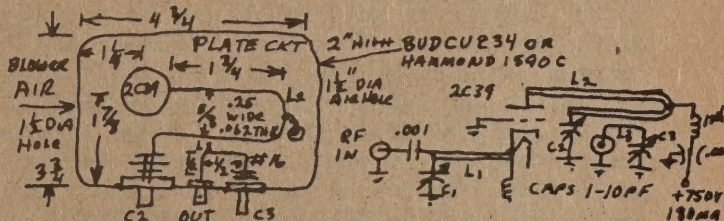 4 3/4
PLATE CKT
2" HIGH
BUD CU234 OR
HAMMOND 1590C
1 1/4
1 3/4
BLOWER
AIR
1 1/2 DIA
HOLE
1 1/2" DIA
AIR HOLE
2C39
L2
.25
WIDE
.062 THK
5/8
1 7/8
3 3/4
1/2
#16
C2
OUT
C3
2C39
L2
RF
IN
.001
L1
C1
C2
L3
C3
CAPS 1-10PF
+750V
180MA